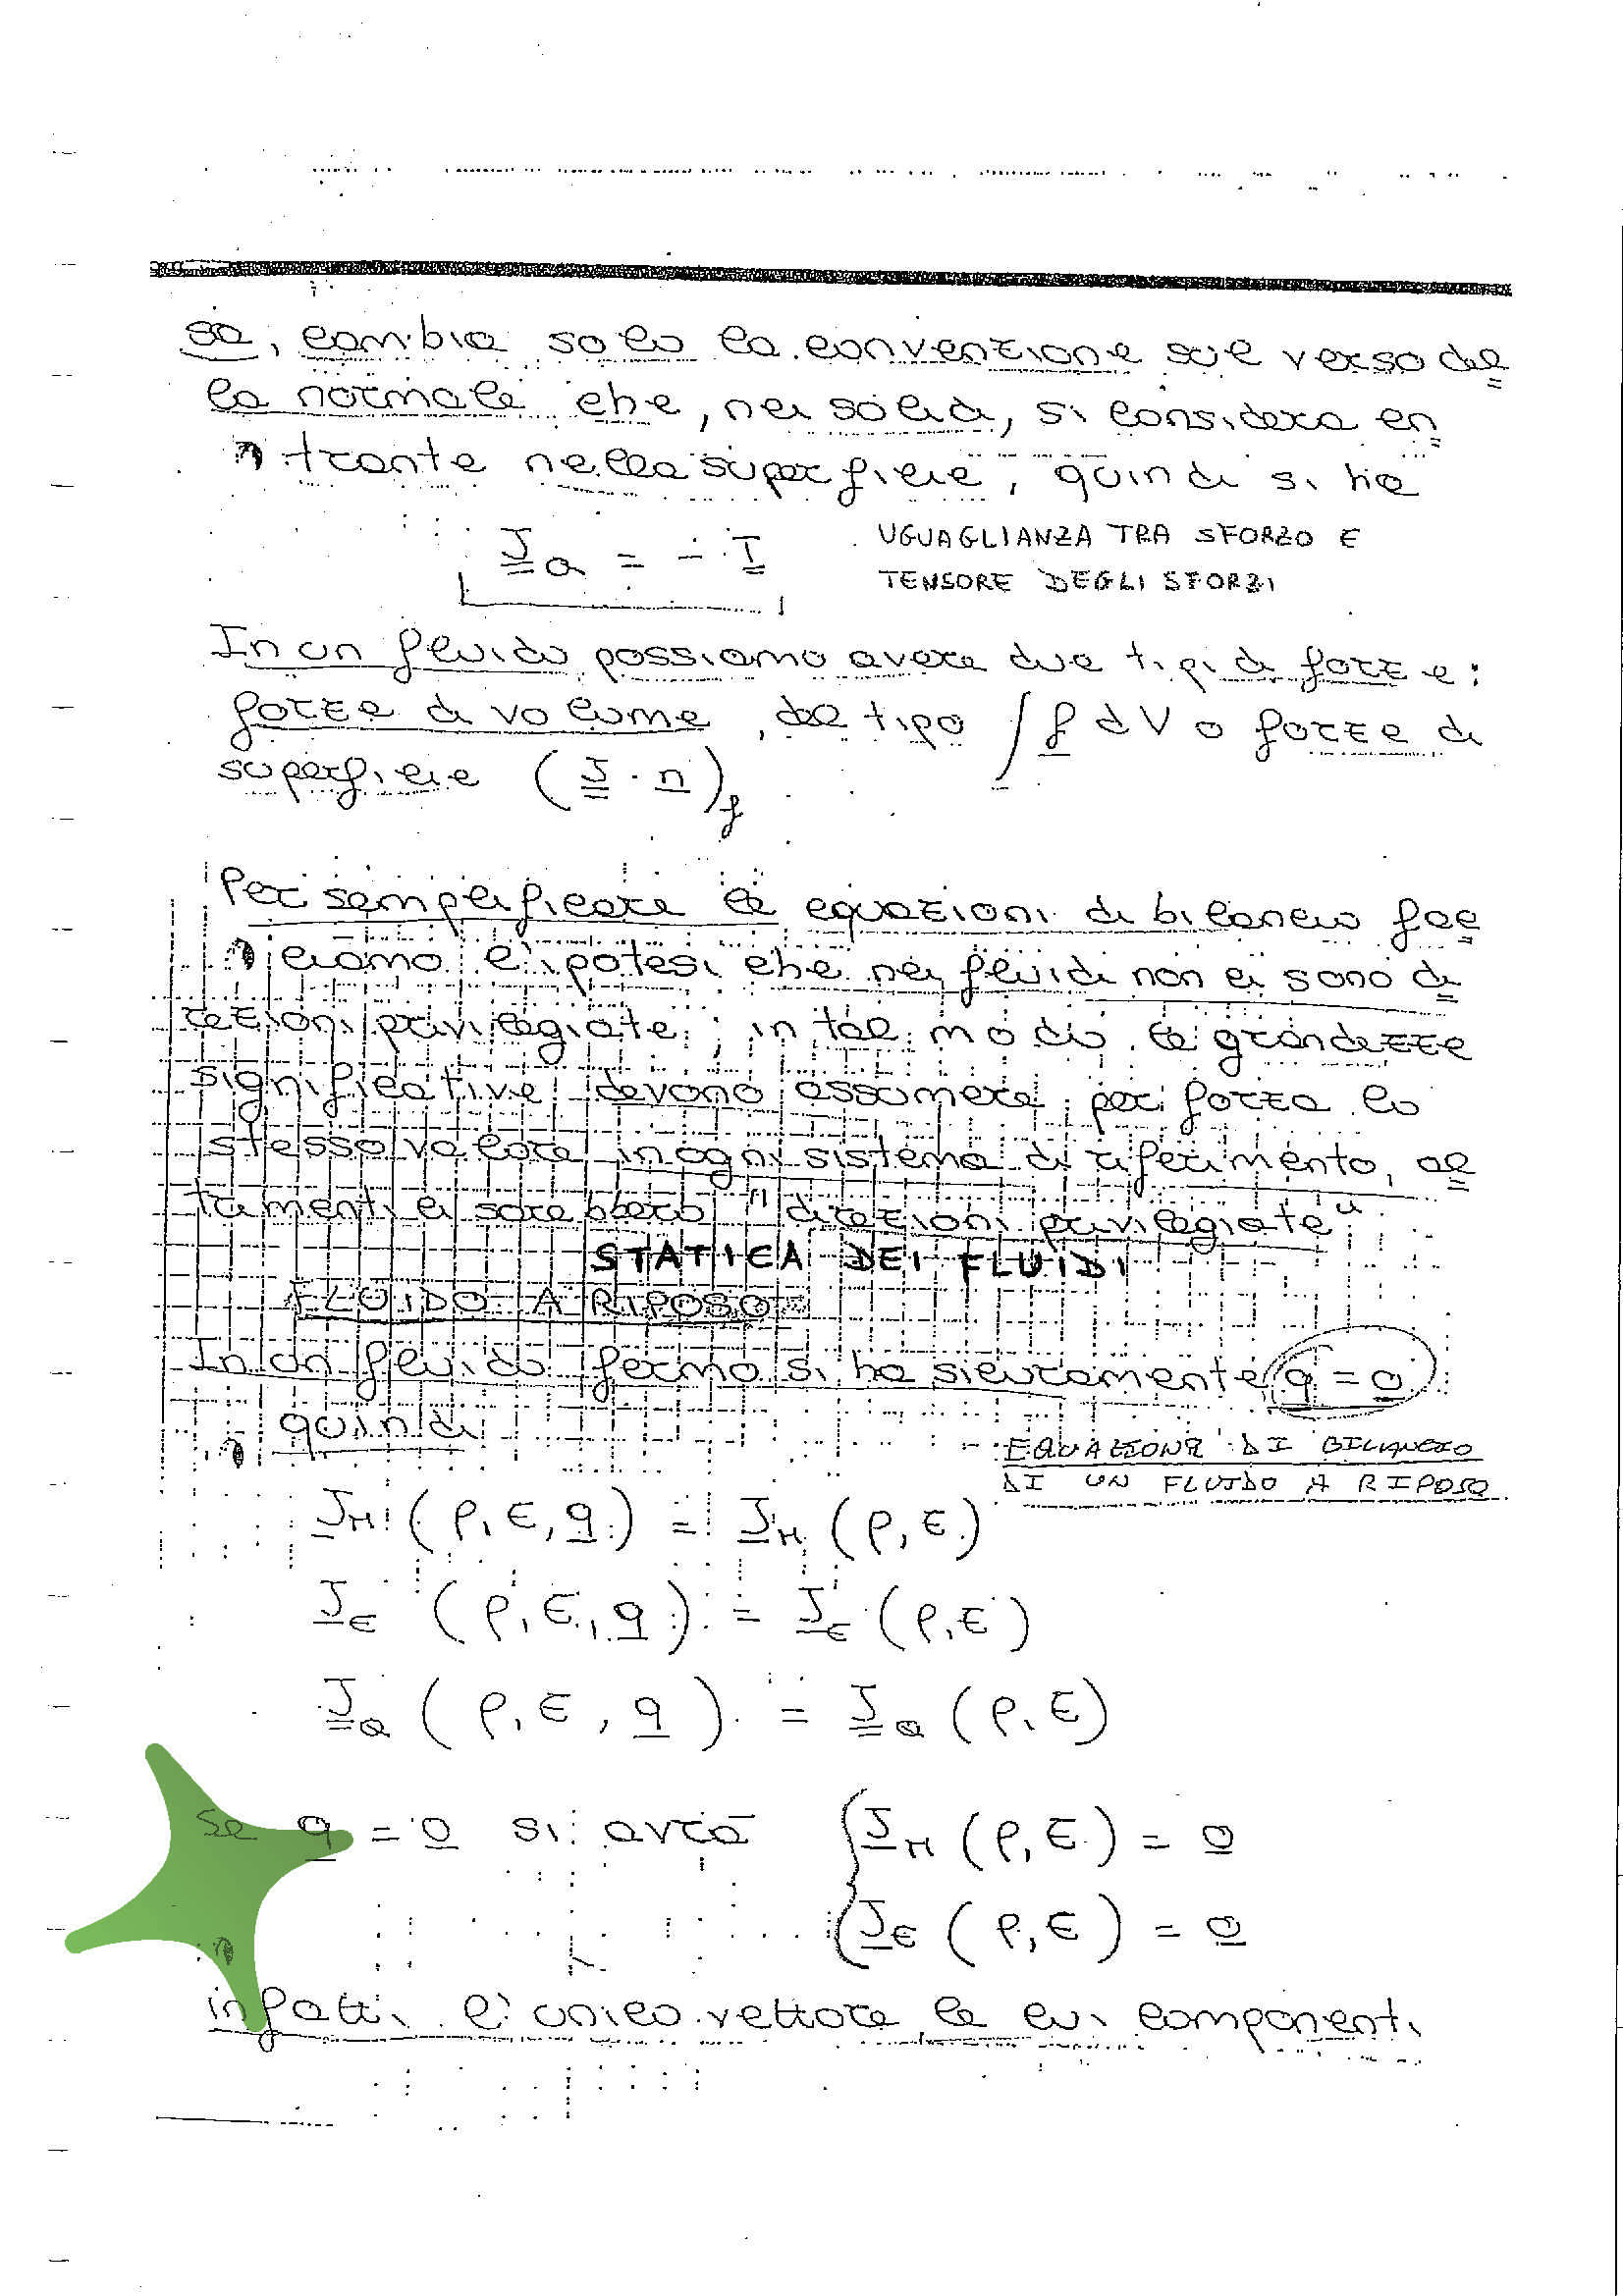 sa, cambia solo la convenzione sul verso del
la normale che, nei solidi, si considera en
trante nella superficie, quindi si ha
J̳a = - T̳
UGUAGLIANZA TRA SFORZO E
TENSORE DEGLI SFORZI
In un fluido possiamo avere due tipi di forze:
forze di volume, del tipo ∫ f̲ dV o forze di
superficie (J̳ · n̲)f
Per semplificare le equazioni di bilancio fac
ciamo l'ipotesi che nei fluidi non ci sono di
rezioni privilegiate; in tal modo le grandezze
significative devono assumere per forza lo
stesso valore in ogni sistema di riferimento, al
trimenti ci sarebbero "direzioni privilegiate".
STATICA DEI FLUIDI
FLUIDO A RIPOSO
In un fluido fermo si ha sicuramente q = 0
quindi
EQUAZIONE DI BILANCIO
DI UN FLUIDO A RIPOSO
J̲M (ρ, ϵ, q̲) = J̲M (ρ, ϵ)
J̲ϵ (ρ, ϵ, q̲) = J̲ϵ (ρ, ϵ)
J̳Q (ρ, ϵ, q̲) = J̳Q (ρ, ϵ)
Se q̲ = 0̲ si avrà { J̲M (ρ, ϵ) = 0̲
J̲ϵ (ρ, ϵ) = 0̲
infatti l'unico vettore le cui componenti